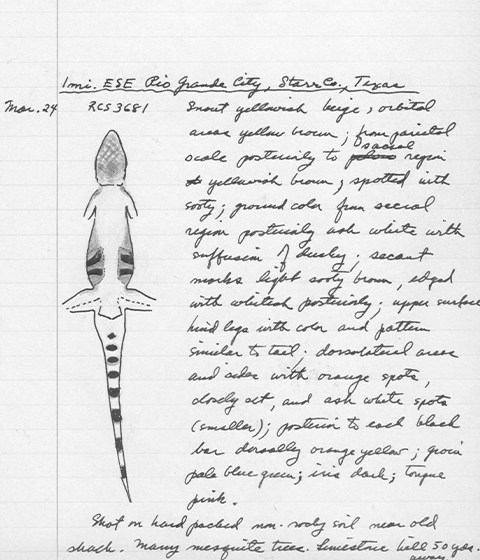 1 mi. ESE Rio Grande City, Starr Co., Texas
Mar. 24 RCS 3681 Snout yellowish beige; orbital
areas yellow brown; from parietal
scale posteriorly to sacral region
yellowish brown; spotted with
sooty; ground color from sacral
region posteriorly ash white with
suffusion of dusky;
marks light sooty brown, edged
with whitish posteriorly; upper surface
hind legs with color and pattern
similar to tail; dorsolateral areas
and sides with orange spots,
closely set, and ash white spots
(smaller); posterior to each black
bar dorsally orange yellow; groin
pale blue green; iris dark; tongue
pink.
Shot on hard packed non-rocky soil near old
shack. Many mesquite trees. Limestone hill 50 yds.
away